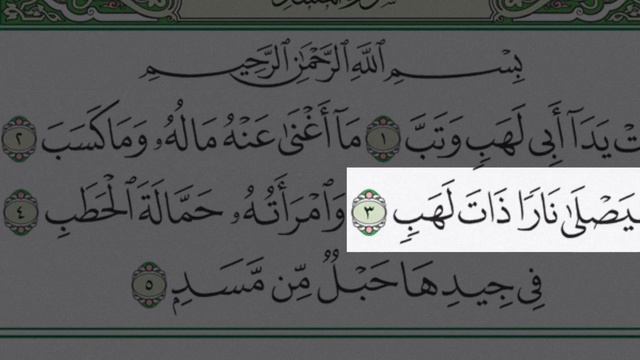 بِسْمِ ٱللَّهِ ٱلرَّحْمَٰنِ ٱلرَّحِيمِ
يَدَآ أَبِى لَهَبٍ وَتَبَّ ١ مَآ أَغْنَىٰ عَنْهُ مَالُهُۥ وَمَا كَسَبَ ٢
سَيَصْلَىٰ نَارًا ذَاتَ لَهَبٍ ٣ وَٱمْرَأَتُهُۥ حَمَّالَةَ ٱلْحَطَبِ ٤
فِى جِيدِهَا حَبْلٌ مِّن مَّسَدٍۭ ٥